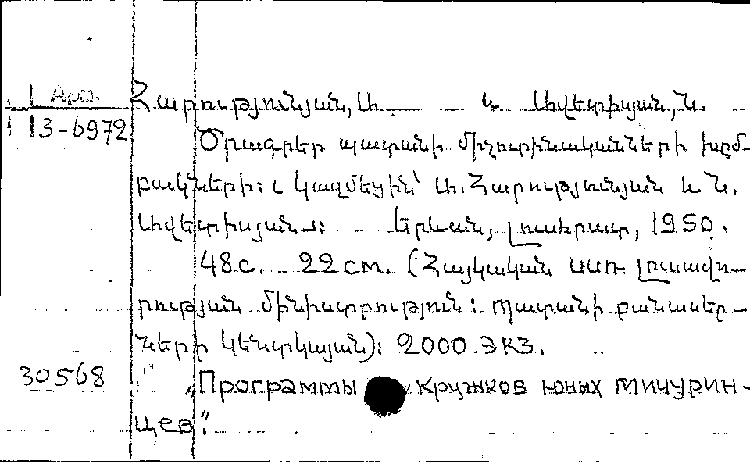 Арм. Հարությունյան, Ա. և Ավետիսյան, Ն.
13-6972
Ծրագրեր պատանի միչուրինականների խըմ-
բակների: [Կազմեցին՝ Ա. Հարությունյան և Ն.
Ավետիսյան]: Երևան, Լուսհրատ, 1950.
48 с. 22 см. (Հայկական ՍՍՌ լուսավո-
րության մինիստրություն: Պատանի բանասեր-
ների կենտկայան): 2000 экз.
30568 „Программы кружков юных мичурин-
цев".